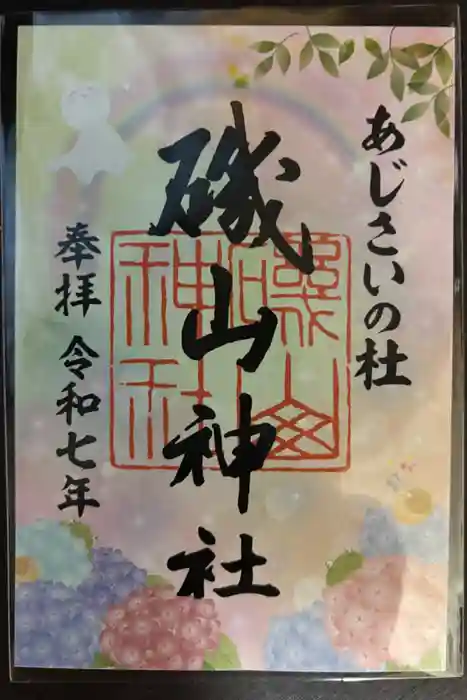 あじさいの杜
磯山神社
奉拝 令和七年
磯山神社